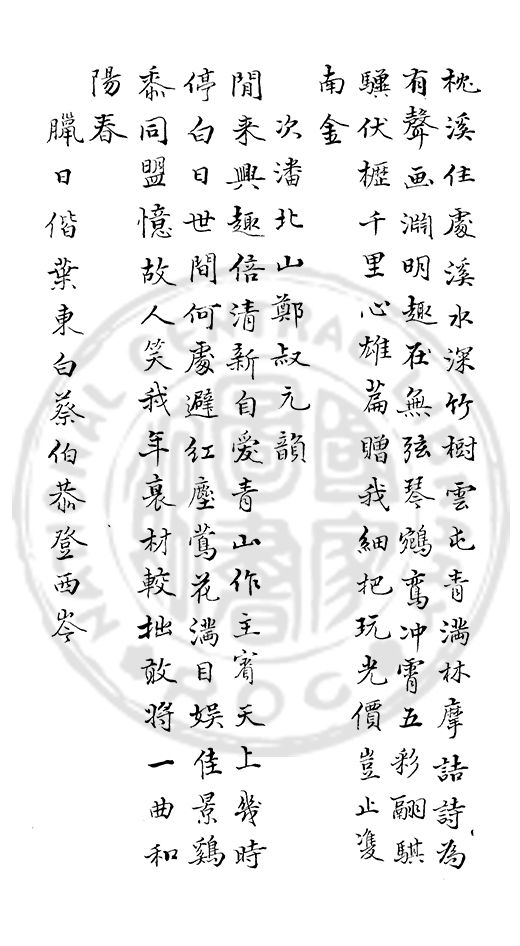 枕溪住處溪水深竹樹雲屯青滿林摩詰詩為
有聲画淵明趣在無弦琴鵷鸞冲霄五彩翮騏
驥伏櫪千里心雄篇贈我細把玩光價豈止雙
南金
次潘北山鄭叔元韻
閒来興趣倍清新自愛青山作主賓天上幾時
停白日世間何處避紅塵鶯花滿目娛佳景鷄
黍同盟憶故人笑我年衰材較拙敢将一曲和
陽春
臘日偕葉東白蔡伯恭登西岑